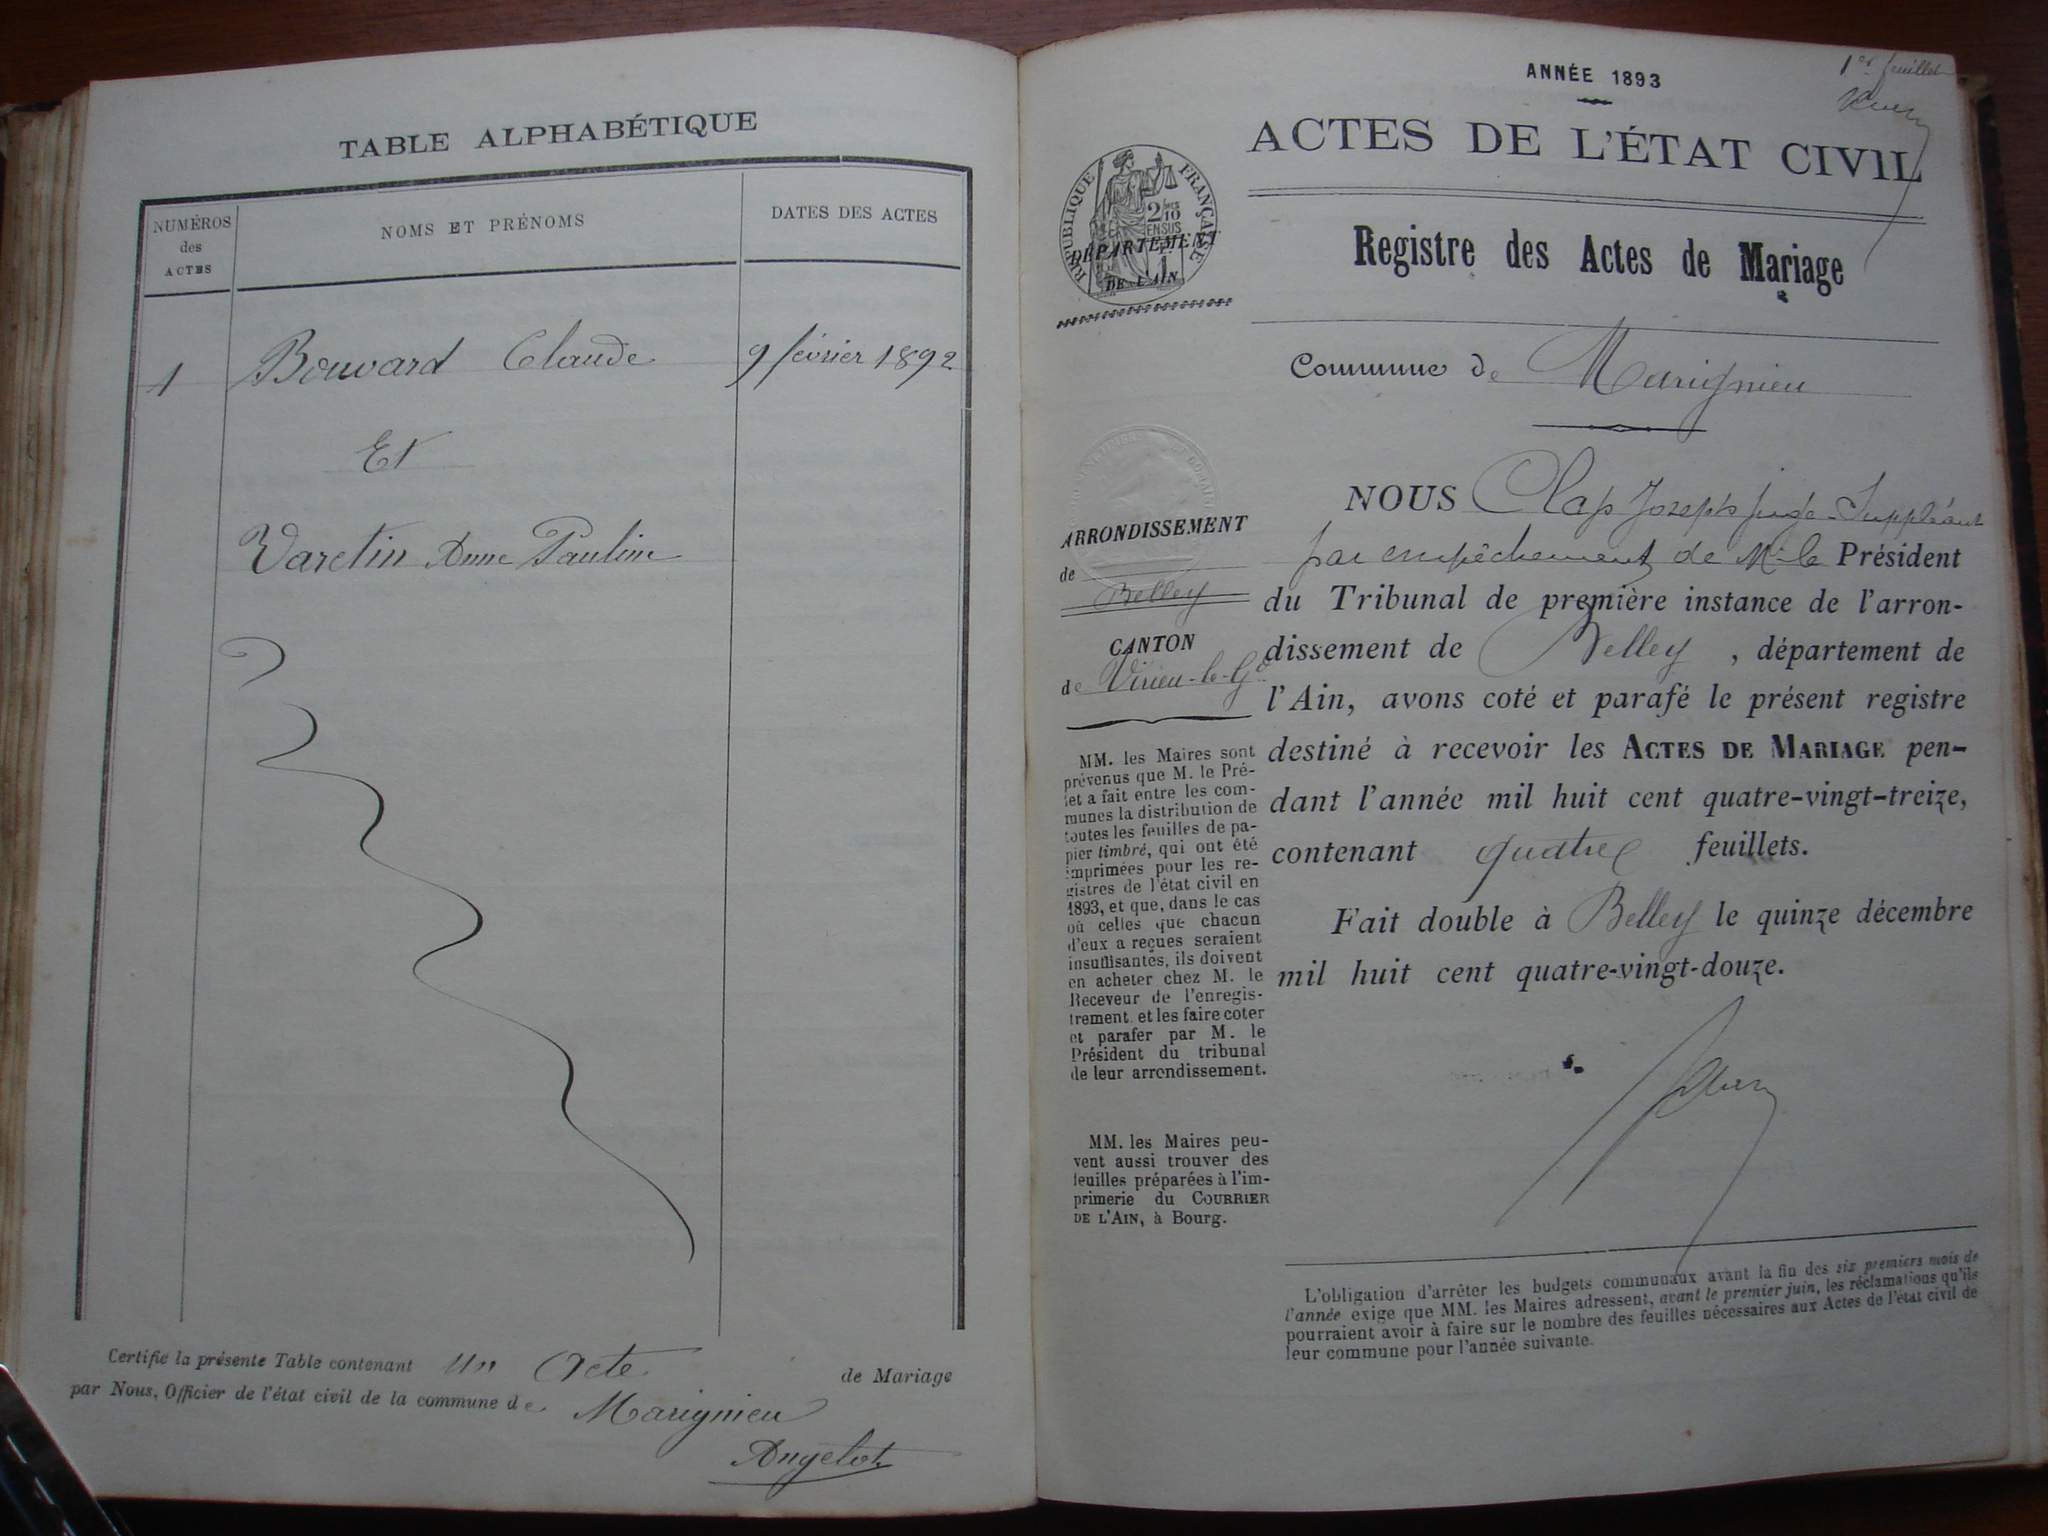 TABLE ALPHABÉTIQUE
NUMÉROS
des
ACTES
NOMS ET PRÉNOMS
DATES DES ACTES
1 Bouvard Claude 9 février 1892
Et
Varetin Anne Pauline
Certifié la présente Table contenant Un Acte de Mariage
par Nous, Officier de l'état civil de la commune de Marignieu
Angelot
1er feuillet
ANNÉE 1893
ACTES DE L'ÉTAT CIVIL
RÉPUBLIQUE FRANÇAISE
2/10
EN SUS
DÉPARTEMENT
DE L'AIN
Registre des Actes de Mariage
Commune de Marignieu
ARRONDISSEMENT
de
Belley
CANTON
de Virieu-le-Gd
MM. les Maires sont
prévenus que M. le Pré-
fet a fait entre les com-
munes la distribution de
toutes les feuilles de pa-
pier timbré, qui ont été
imprimées pour les re-
gistres de l'état civil en
1893, et que, dans le cas
où celles que chacun
d'eux a reçues seraient
insuffisantes, ils doivent
en acheter chez M. le
Receveur de l'enregis-
trement et les faire coter
et parafer par M. le
Président du tribunal
de leur arrondissement.
MM. les Maires peu-
vent aussi trouver des
feuilles préparées à l'im-
primerie du COURRIER
DE L'AIN, à Bourg.
NOUS Clap Joseph juge-Suppléant
par empêchement de Mr le Président
du Tribunal de première instance de l'arron-
dissement de Belley, département de
l'Ain, avons coté et parafé le présent registre
destiné à recevoir les ACTES DE MARIAGE pen-
dant l'année mil huit cent quatre-vingt-treize,
contenant quatre feuillets.
Fait double à Belley le quinze décembre
mil huit cent quatre-vingt-douze.
L'obligation d'arrêter les budgets communaux avant la fin des six premiers mois de
l'année exige que MM. les Maires adressent, avant le premier juin, les réclamations qu'ils
pourraient avoir à faire sur le nombre des feuilles nécessaires aux Actes de l'état civil de
leur commune pour l'année suivante.